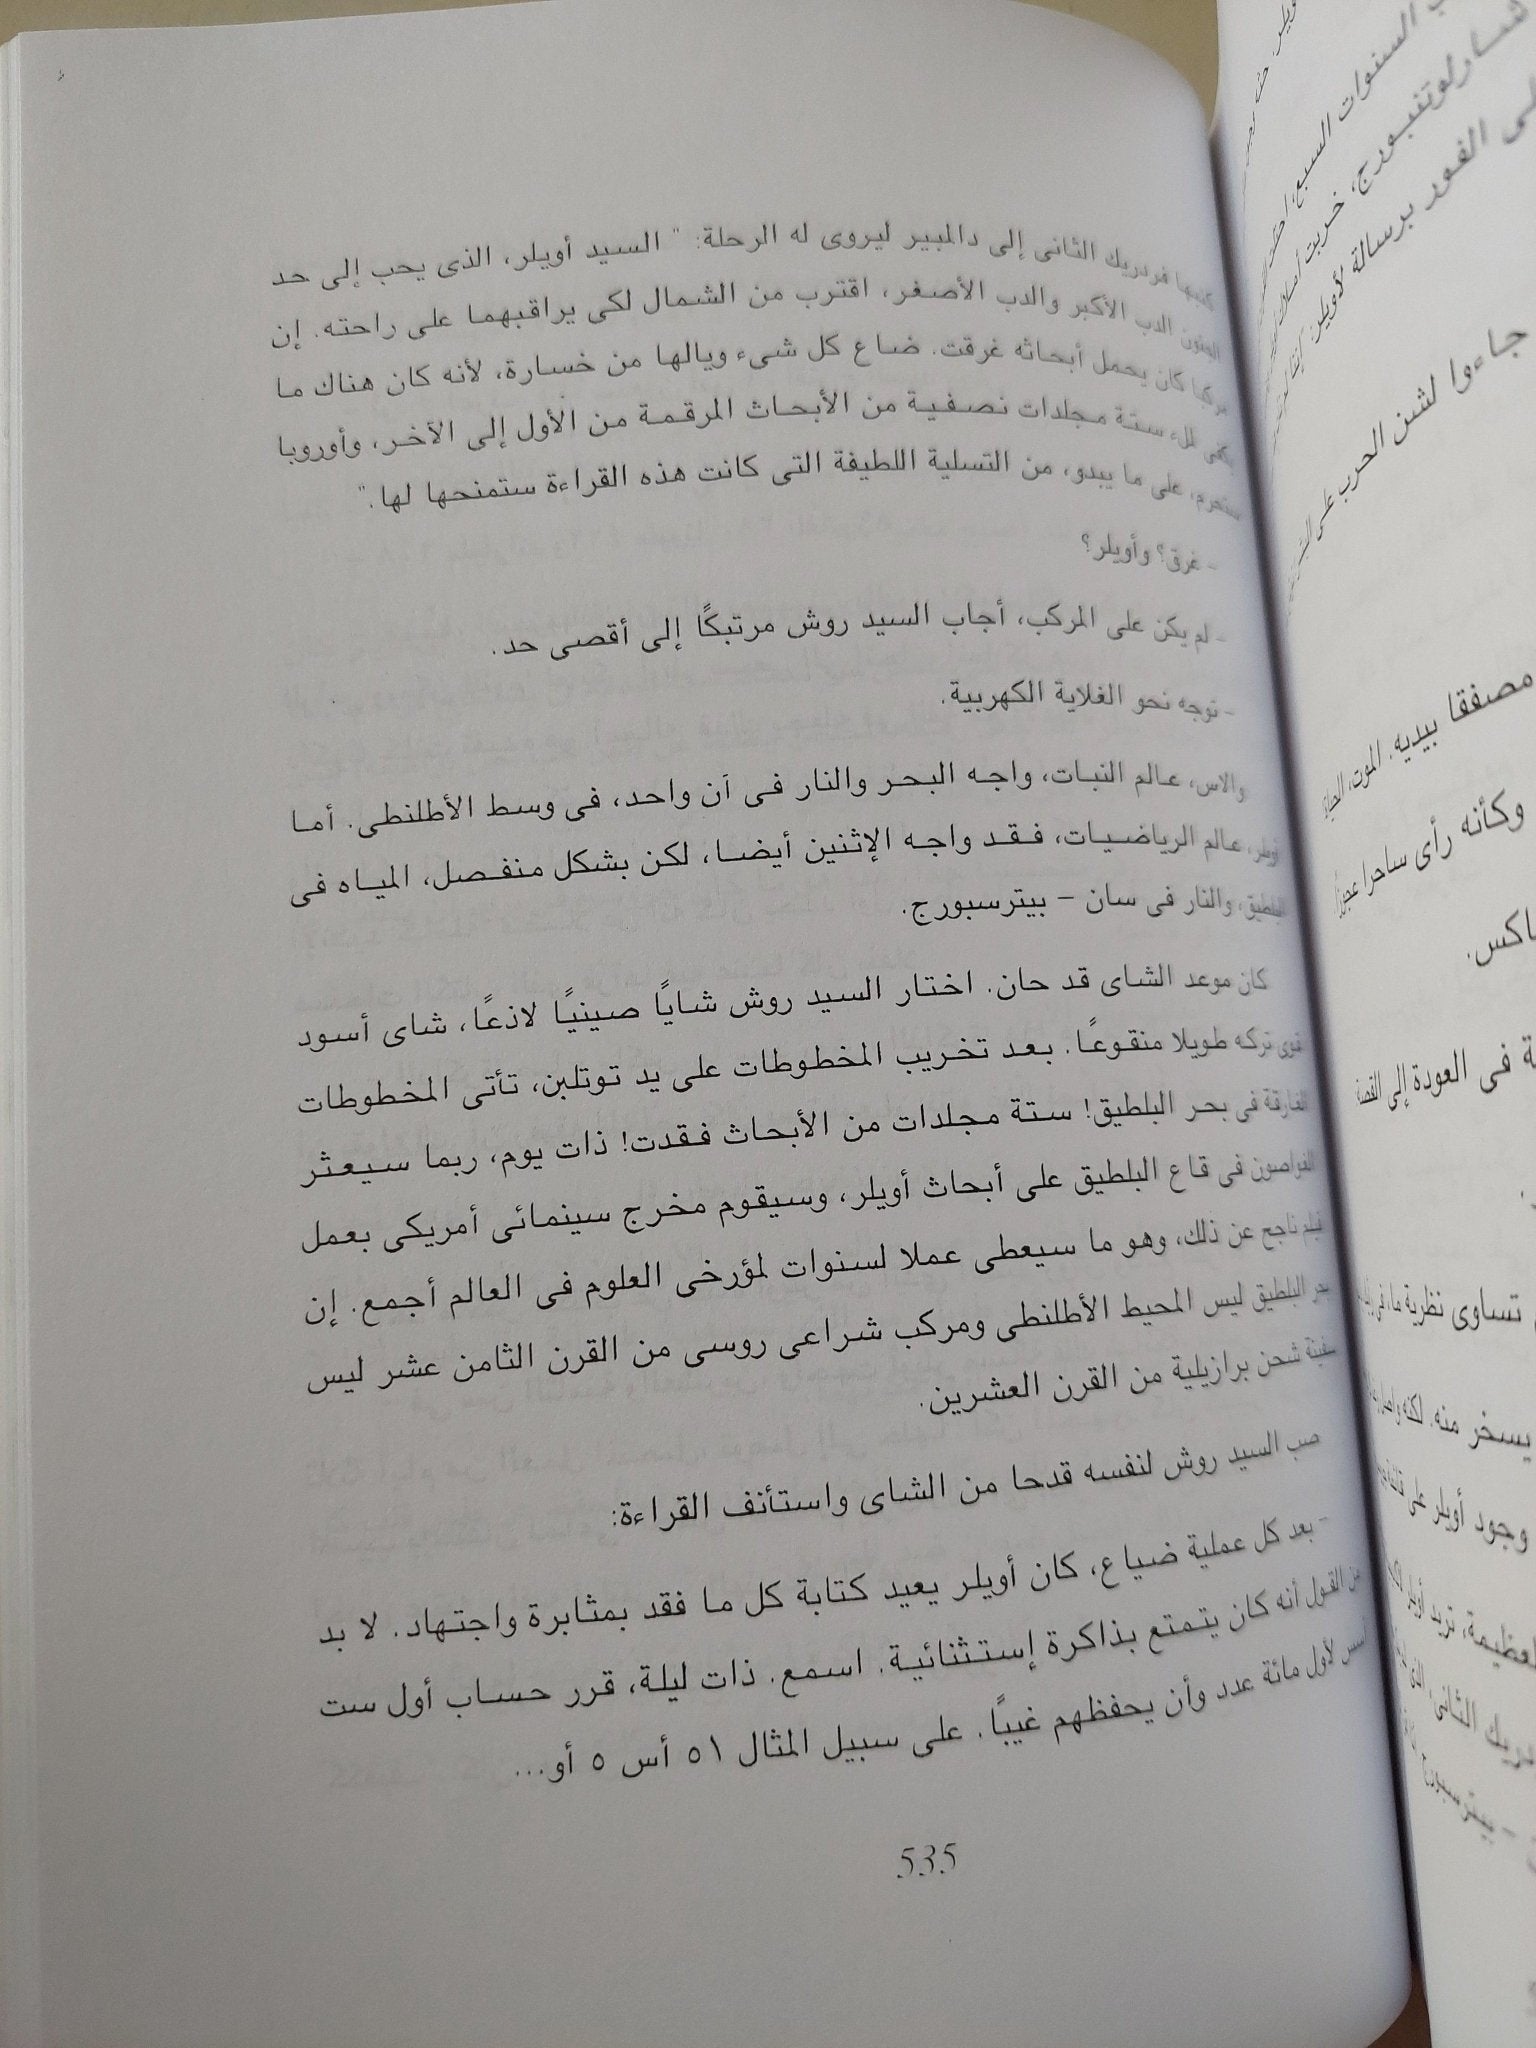 كتبها فردريك الثانى إلى دالمبير ليروى له الرحلة: " السيد أويلر، الذى يحب إلى حد
الجنون الدب الأكبر والدب الأصغر، اقترب من الشمال لكى يراقبهما على راحته. إن
مركبا كان يحمل أبحاثه غرقت. ضاع كل شىء ويالها من خسارة، لأنه كان هناك ما
يكفى لملء ستة مجلدات نصفية من الأبحاث المرقمة من الأول إلى الآخر، وأوروبا
ستحرم، على ما يبدو، من التسلية اللطيفة التى كانت هذه القراءة ستمنحها لها."
- غرق؟ وأويلر؟
- لم يكن على المركب، أجاب السيد روش مرتبكًا إلى أقصى حد.
- توجه نحو الغلاية الكهربية.
والاس، عالم النبات، واجه البحر والنار فى آن واحد، فى وسط الأطلنطى. أما
أويلر، عالم الرياضيات، فقد واجه الإثنين أيضا، لكن بشكل منفصل، المياه فى
البلطيق، والنار فى سان - بيترسبورج.
كان موعد الشاى قد حان. اختار السيد روش شايًا صينيًا لاذعًا، شاى أسود
قوى تركه طويلا منقوعًا. بعد تخريب المخطوطات على يد توتلبن، تأتى المخطوطات
الغارقة فى بحر البلطيق! ستة مجلدات من الأبحاث فقدت! ذات يوم، ربما سيعثر
الغواصون فى قاع البلطيق على أبحاث أويلر، وسيقوم مخرج سينمائى أمريكى بعمل
فيلم ناجح عن ذلك، وهو ما سيعطى عملا لسنوات لمؤرخى العلوم فى العالم أجمع. إن
بحر البلطيق ليس المحيط الأطلنطى ومركب شراعى روسى من القرن الثامن عشر ليس
سفينة شحن برازيلية من القرن العشرين.
صب السيد روش لنفسه قدحا من الشاى واستأنف القراءة:
- بعد كل عملية ضياع، كان أويلر يعيد كتابة كل ما فقد بمثابرة واجتهاد. لا بد
من القول أنه كان يتمتع بذاكرة إستثنائية. اسمع. ذات ليلة، قرر حساب أول ست
أسس لأول مائة عدد وأن يحفظهم غيبًا. على سبيل المثال ٥١ أس ٥ أو...
535
السنوات السبع،
شارلوتنبورج، خربت
الفور برسالة لأويلر:
جاءوا لشن الحرب على
مصفقا بيديه. الموت، الحياة
وكأنه رأى ساحرا عجوزًا.
فى العودة إلى القصة
تساوى نظرية ما،
يسخر منه. لكنه
وجود أويلر على